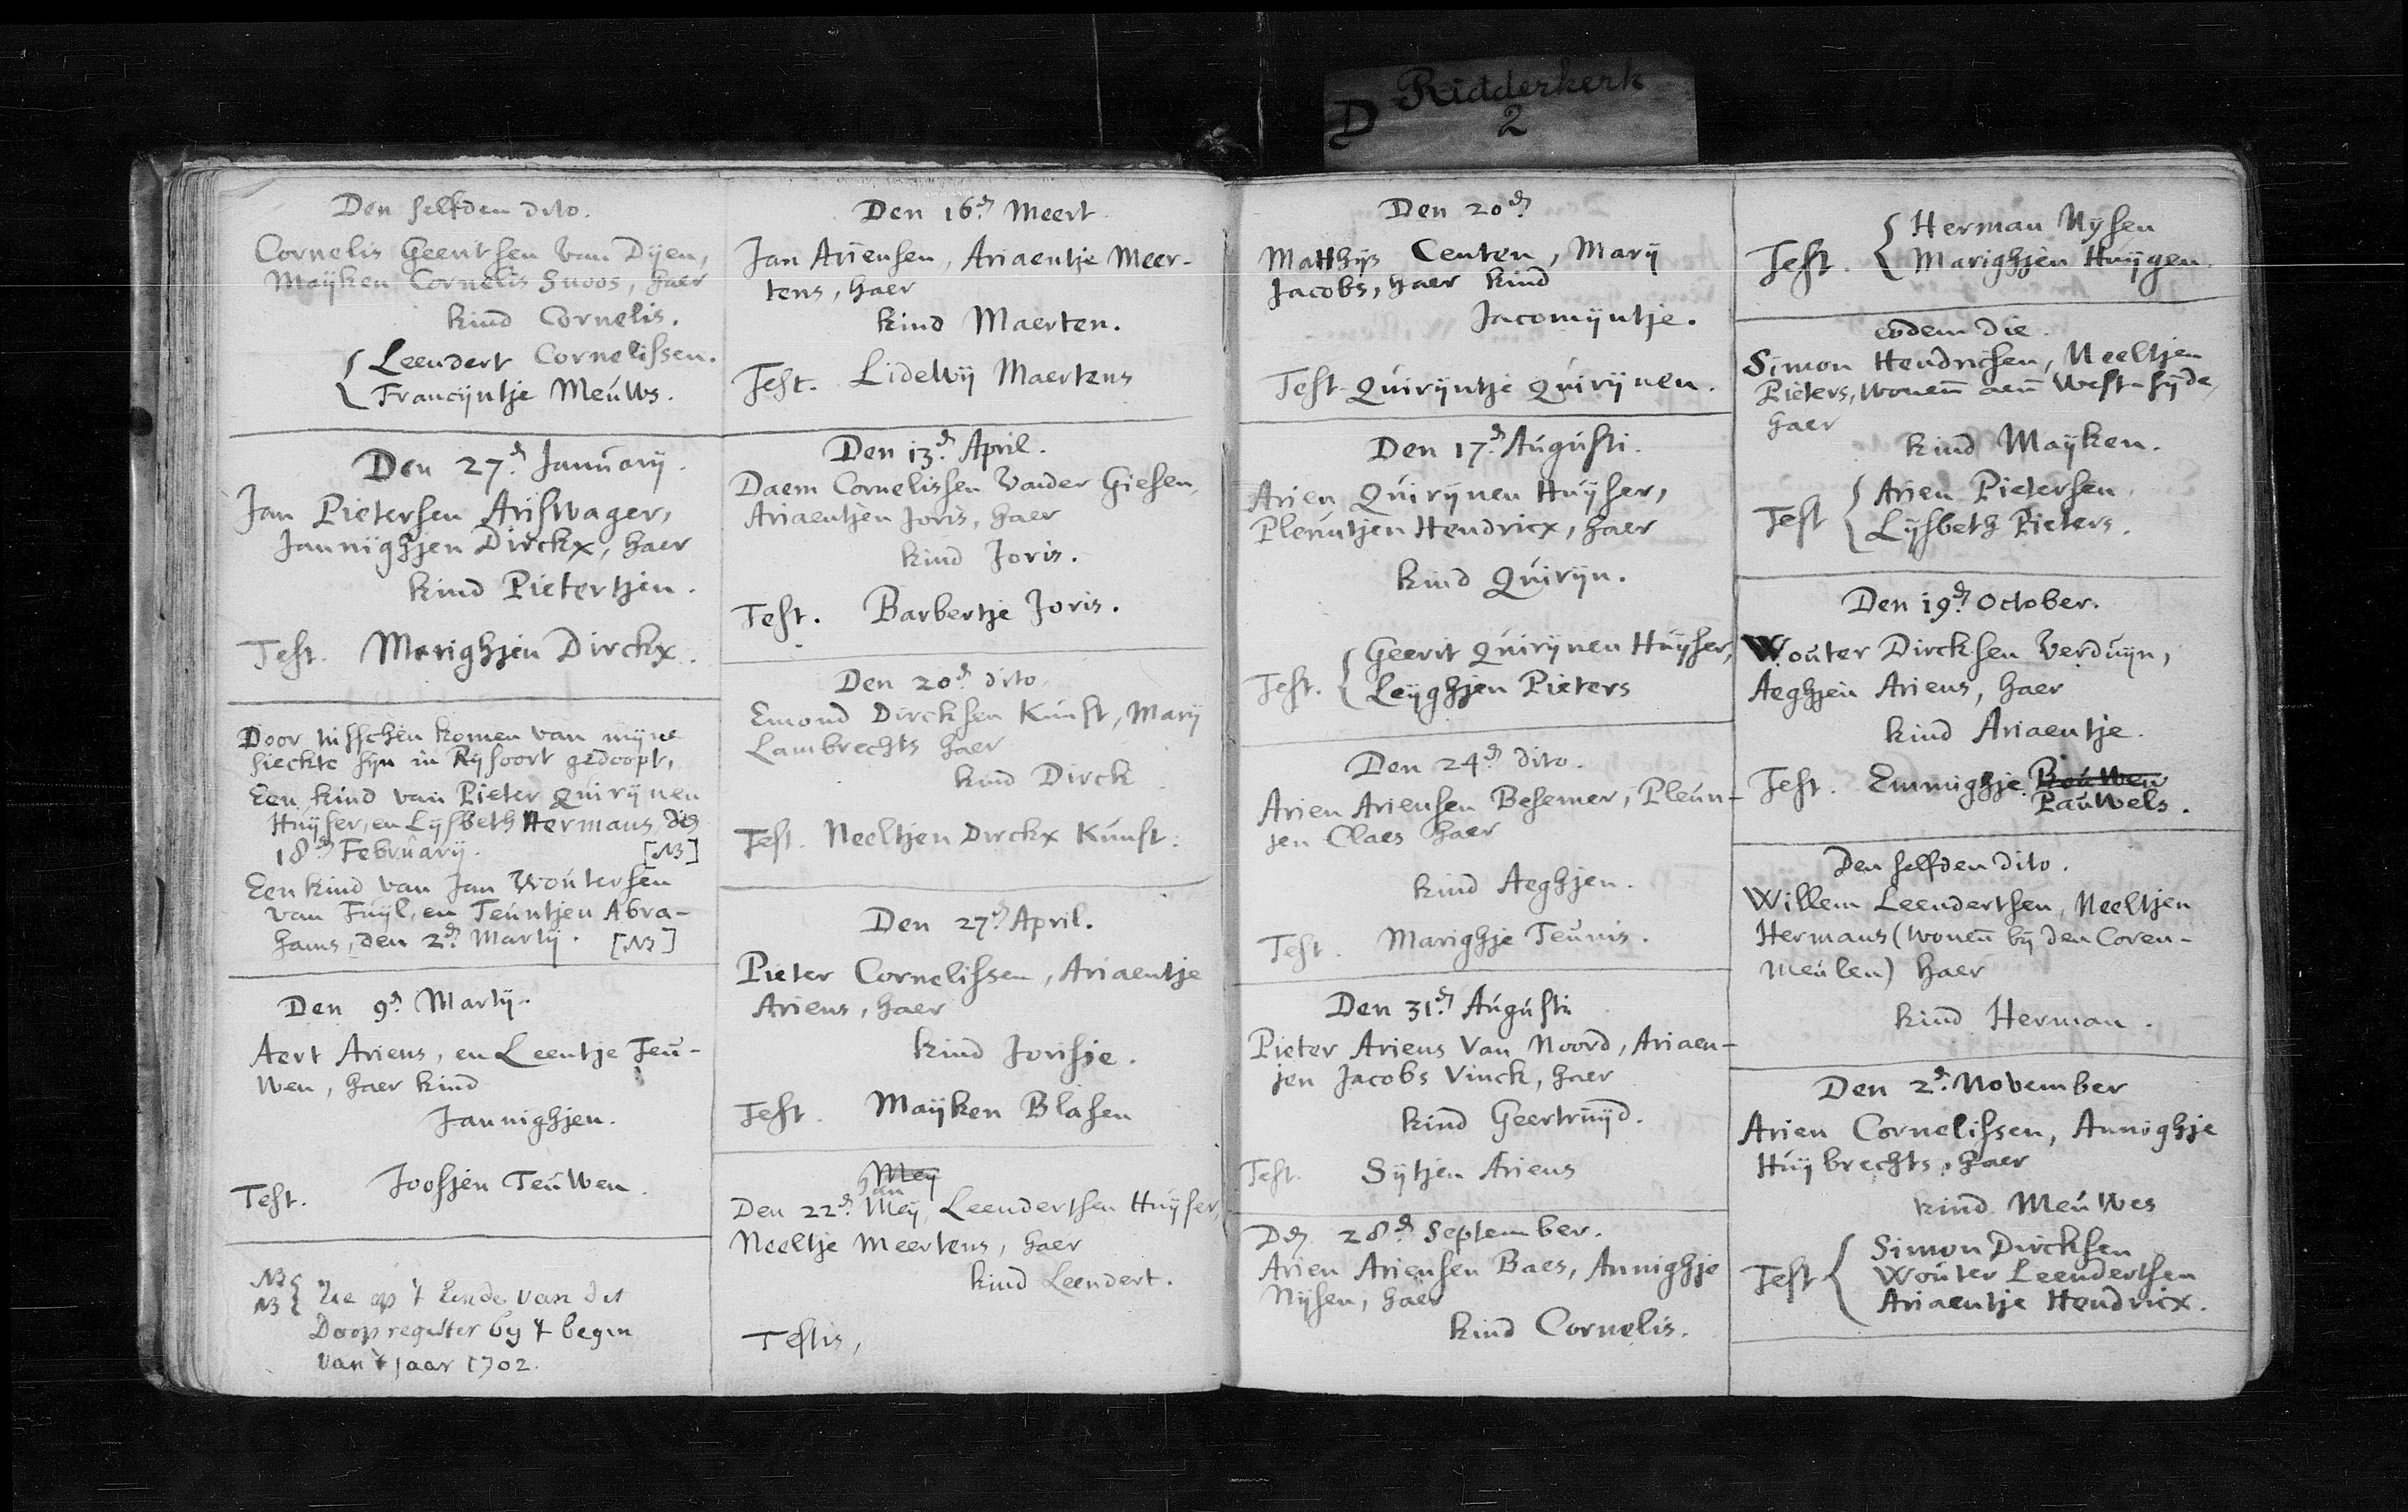 D Ridderkerk
2
Den selfden dito.
Cornelis Geeritsen van Dijen,
Maÿken Cornelis Snoos, haer
kind Cornelis.
Leendert Cornelissen.
Francÿntje Meuws.
Den 27.n Januarij.
Jan Pietersen Arijswager,
Jannighjen Dirckx, haer
kind Pietertjen.
Test. Marighjen Dirckx.
Door tusschen komen van mijne
sieckte sijn in Rijsoort gedoopt,
Een kind van Pieter Quirijnen
Huijser, en Lijsbeth Hermans, den
18.n Februarij. [NB]
Een kind van Jan Woutersen
van Fuijl, en Teuntjen Abra-
hams, den 2.n Martij. [NB]
Den 9.n Martij.
Aert Ariens, en Leentje Teu-
wen, haer kind
Jannighjen.
Test. Joosjen Teuwen.
NB
NB { Zie op 't Einde van dit
Doopregister bij 't begin
van 't jaar 1702.
Den 16.n Meert.
Jan Ariensen, Ariaentje Meer-
tens, haer
kind Maerten.
Test. Lidewij Maertens
Den 13.n April.
Daem Cornelissen vander Giesen,
Ariaentjen Joris, haer
kind Joris.
Test. Barbertje Joris.
Den 20.n dito
Emond Dircksen Kunst, Marij
Lambrechts haer
kind Dirck
Test. Neeltjen Dirckx Kunst.
Den 27.n April.
Pieter Cornelissen, Ariaentje
Ariens, haer
kind Jorisje.
Test. Maijken Blasen
Meij
Jan
Den 22.n Meij, Leendertsen Huijser,
Neeltje Meertens, haer
kind Leendert.
Testis,
Den 20.n
Matthijs Centen, Marij
Jacobs, haer kind
Jacomijntje.
Test. Quirijntje Quirijnen.
Den 17.n Augusti.
Arien Quirijnen Huijser,
Pleuntjen Hendricx, haer
kind Quirijn.
Test. { Geerit Quirijnen Huijser,
Leijghjen Pieters
Den 24.n dito.
Arien Ariensen Besemer, Pleun-
jen Claes haer
kind Aeghjen.
Test. Marighje Teunis.
Den 31.n Augusti
Pieter Ariens van Noord, Ariaen-
jen Jacobs Vinck, haer
kind Geertruijd.
Test. Sijtjen Ariens
Den 28.n September.
Arien Ariensen Baes, Annighje
Nijsen, haer
kind Cornelis.
Test. { Herman Nijsen
Marighjen Huijgen.
eodem die.
Simon Hendricsen, Neeltjen
Pieters, wonen aen West-sijde,
haer
kind Maijken.
Test { Arien Pietersen,
Lijsbeth Pieters.
Den 19.n October.
Wouter Dircksen Verduijn,
Aeghjen Ariens, haer
kind Ariaentje.
Test. Emmighje Bouwen
Pauwels.
Den selfden dito.
Willem Leendertsen, Neeltjen
Hermans (wonen bij den Coren-
meulen) haer
kind Herman.
Den 2.n November
Arien Cornelissen, Annighje
Huijbrechts, haer
kind Meuwes
Test { Simon Dircksen
Wouter Leendertsen
Ariaentje Hendricx.